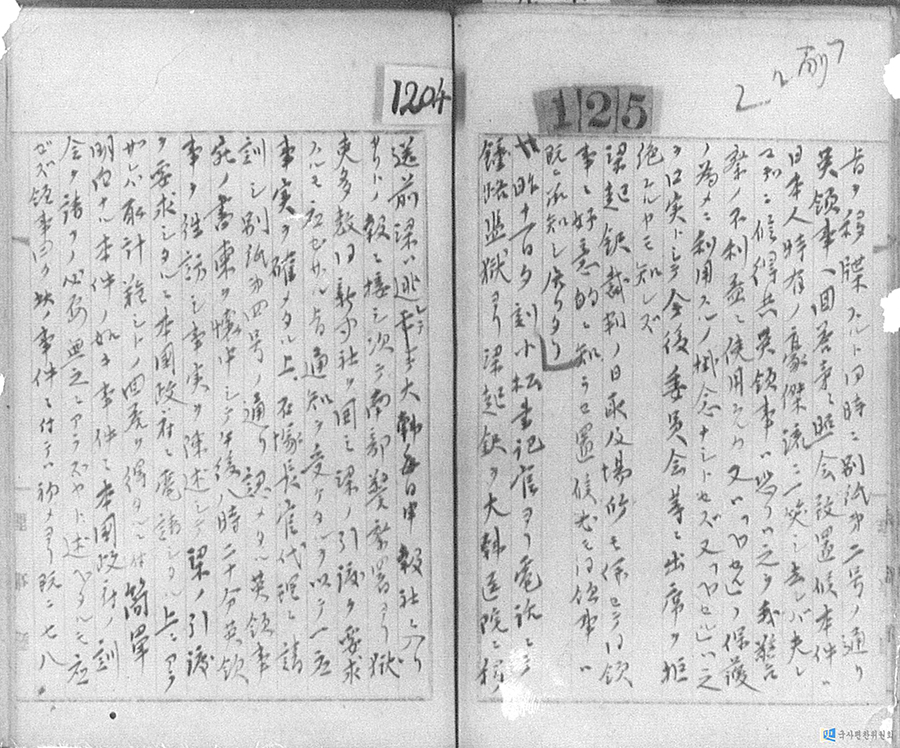 2 2 前 7
125
旨ヲ移牒スルト同時ニ別紙第二号ノ通リ
英領事ヘ回答案ニ照会致置候本件ハ
日本人特有ノ豪傑流ニ一笑シ去レバ夫レ
マデニ候得共英領事ハ
察ノ不利益ニ使用
ノ為メニ利用スルノ掛念ナシトセズ又「ベセル」ハ之
ヲ口実トシテ今後委員会等ニ出席ヲ拒
絶スルヤモ知レズ
梁起鐸裁判ノ日取及場所モ係ニテハ領
事ニ好意的ニ知ラセ置候
既ニ承知シ居タリ
昨十一日夕刻小松書記官ヨリ電話ニテ
鍾路監獄ヨリ梁起鐸ヲ大韓医院ニ移
1204
送前梁ハ逃走シテ大韓毎日申報社ニ入リ
タリトノ報ニ接シ次テ南部警察署ヨリ獄
吏多数同新聞社ヲ囲ミ梁ノ引渡ヲ要求
スルモ応ゼザル旨通知ヲ受ケタルヲ以テ一応
事実ヲ確メタル上石塚長官代理ニ請
訓シ別紙第四号ノ通リ認メタル英領事
宛ノ書柬ヲ懐中シテ午後 時二十分英領
事ヲ往訪シ事実ヲ陳述シテ梁ノ引渡
ヲ要求シタルニ本国政府ニ電請シタル上ニアラ
ザレバ取計難シトノ回答ヲ得タルニ付簡単
明白ナル本件ノ如キ事件ニ本国政府ノ訓
令ヲ請フノ必要無之ニアラズヤト述ベタルモ応
ゼズ領事曰ク此ノ事件ニ付テハ初メヨリ既ニ七八
국사편찬위원회